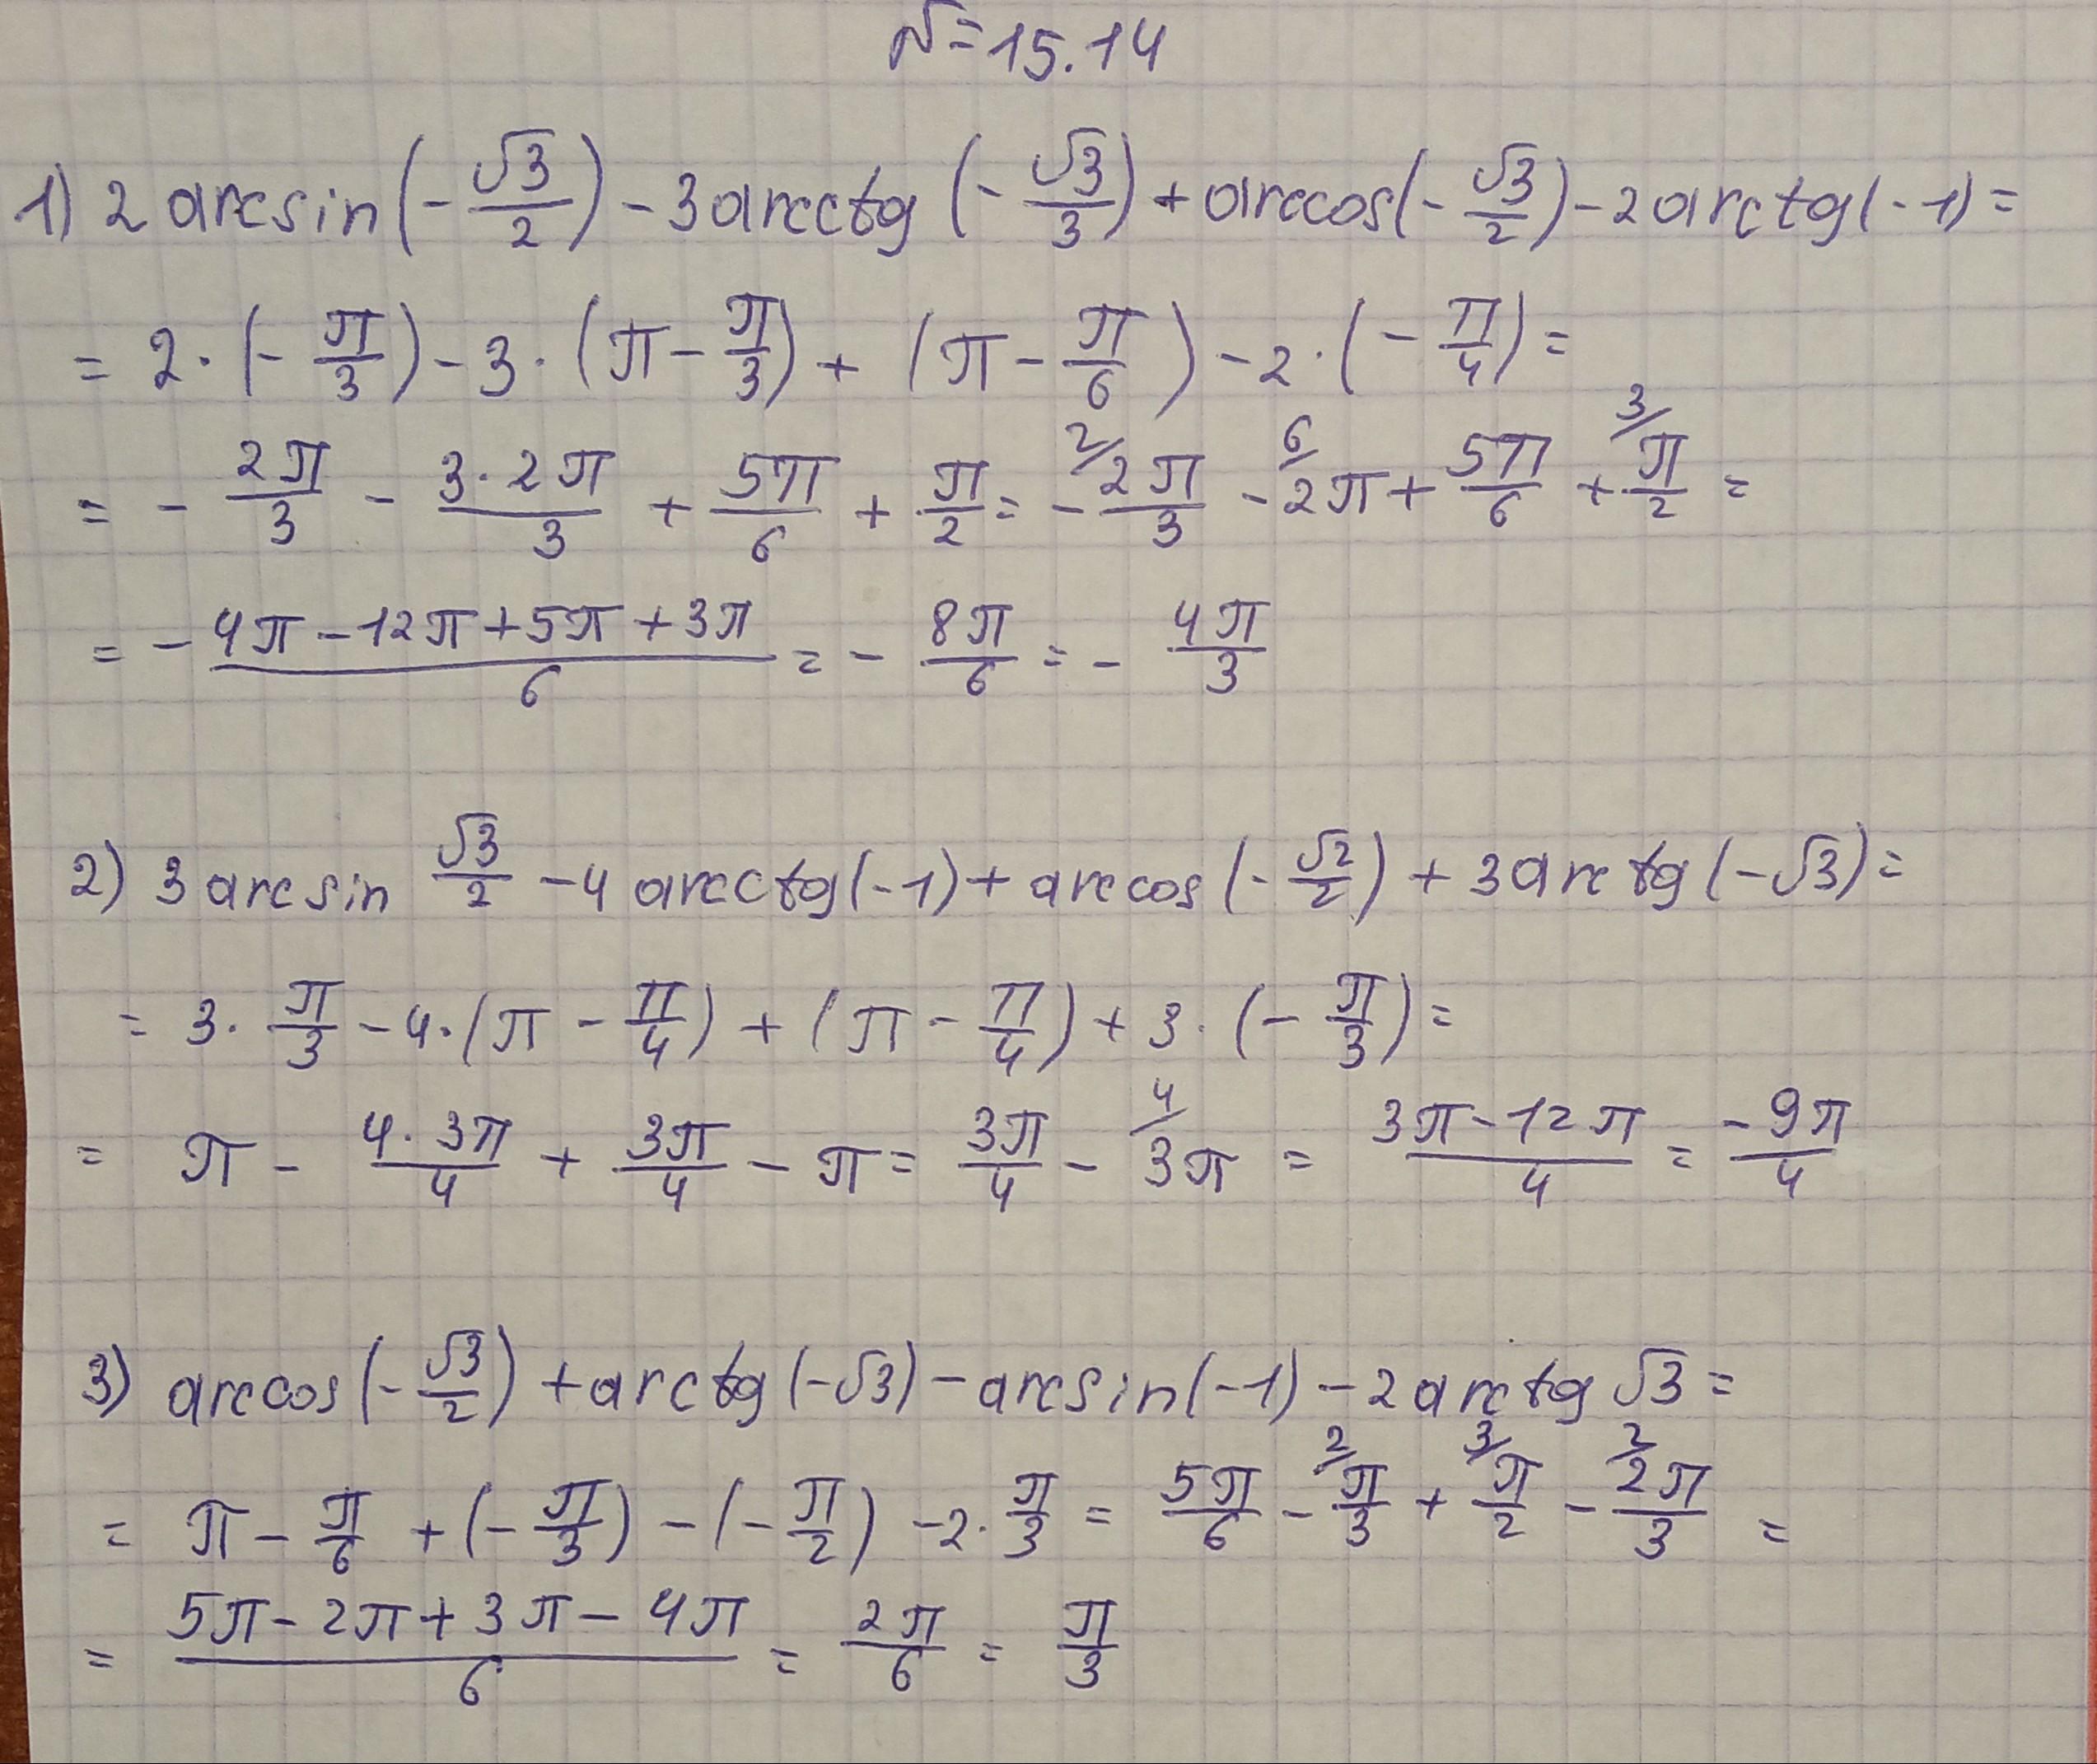 № 15.14
1) 2 arcsin(-√3/2) - 3 arcctg(-√3/3) + arccos(-√3/2) - 2 arctg(-1) =
= 2·(-π/3) - 3·(π - π/3) + (π - π/6) - 2·(-π/4) =
= - 2π/3 - 3·2π/3 + 5π/6 + π/2 = - ²⁄2π/3 - ⁶⁄2π + 5π/6 + ³⁄π/2 =
= - 4π - 12π + 5π + 3π/6 = - 8π/6 = - 4π/3
2) 3 arcsin √3/2 - 4 arcctg(-1) + arccos(-√2/2) + 3 arctg(-√3) =
= 3·π/3 - 4·(π - π/4) + (π - π/4) + 3·(-π/3) =
= π - 4·3π/4 + 3π/4 - π = 3π/4 - ⁴⁄3π = 3π - 12π/4 = -9π/4
3) arccos(-√3/2) + arctg(-√3) - arcsin(-1) - 2 arctg √3 =
= π - π/6 + (-π/3) - (-π/2) - 2·π/3 = 5π/6 - ²⁄π/3 + ³⁄π/2 - ²⁄2π/3 =
= 5π - 2π + 3π - 4π/6 = 2π/6 = π/3